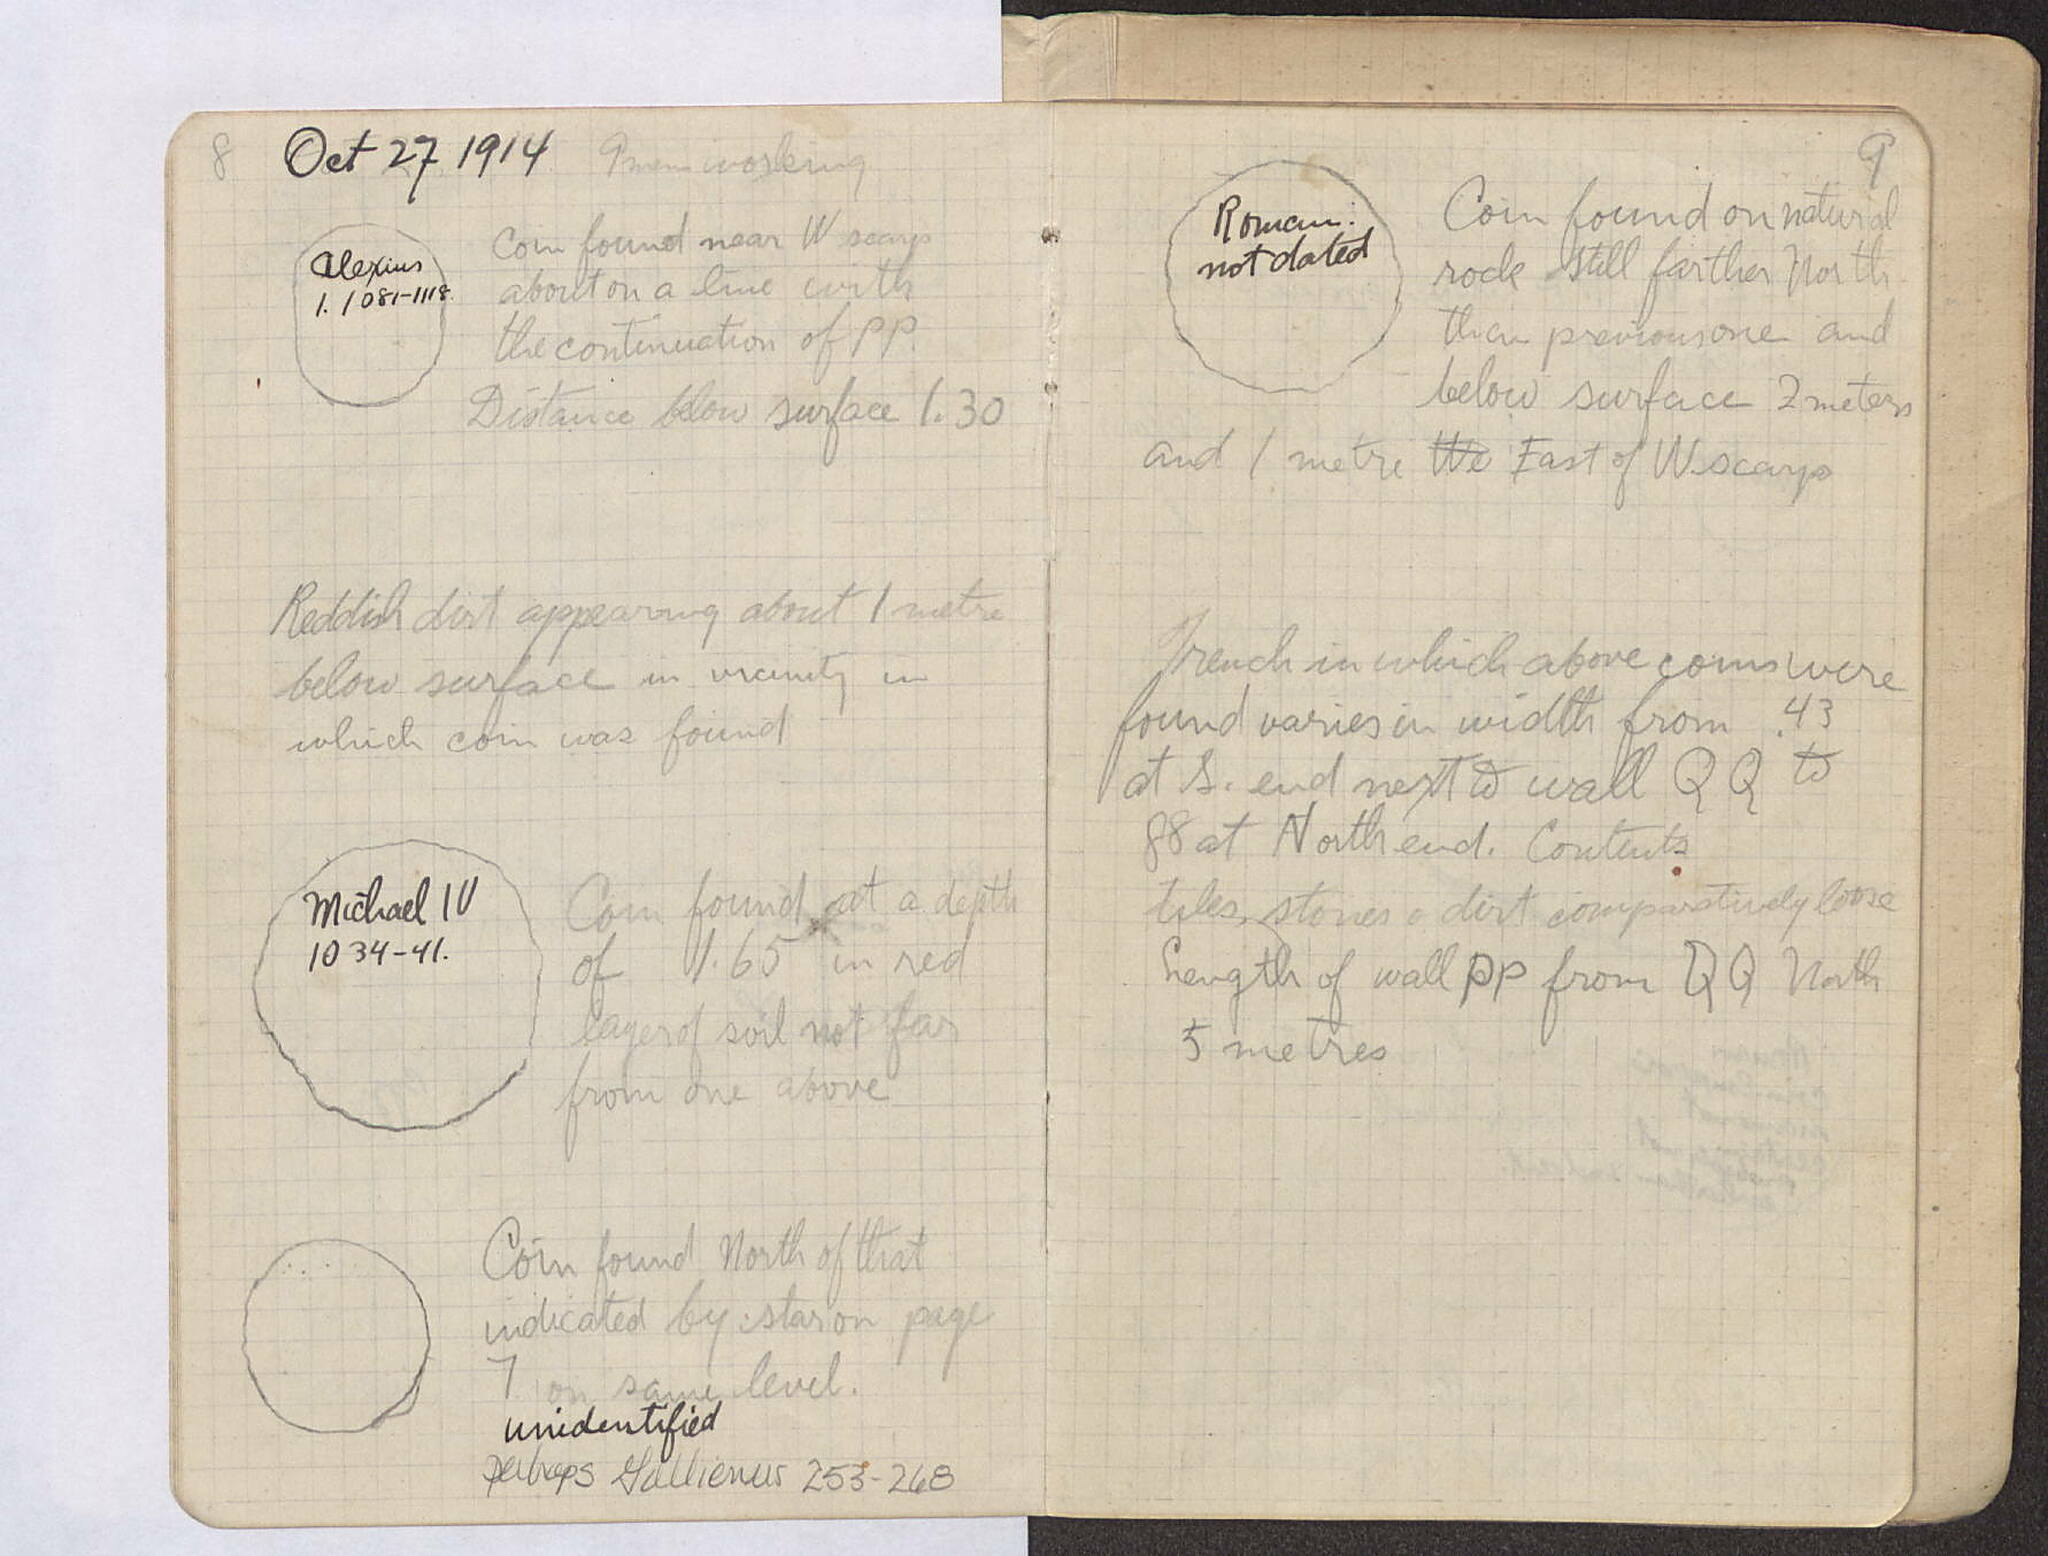 8 Oct 27 1914 9 men working
Alexius
I. 1081-1118.
Coin found near W scarp
about on a line with
the continuation of PP.
Distance below surface 1.30
Reddish dirt appearing about 1 metre
below surface in vicinity in
which coin was found
Michael IV
1034-41.
Coin found at a depth
of 1.65 in red
layer of soil not far
from one above
Coin found North of that
indicated by star on page
7 on same level.
unidentified
perhaps Gallienus 253-268
9
Roman:
not dated
Coin found on natural
rock still farther North
than previous one and
below surface 2 meters
and 1 metre We East of W. scarp
Trench in which above coins were
found varies in width from .43
at S. end next to wall QQ to
88 at North end. Contents
tiles, stones & dirt comparatively loose
Length of wall PP from QQ North
5 metres